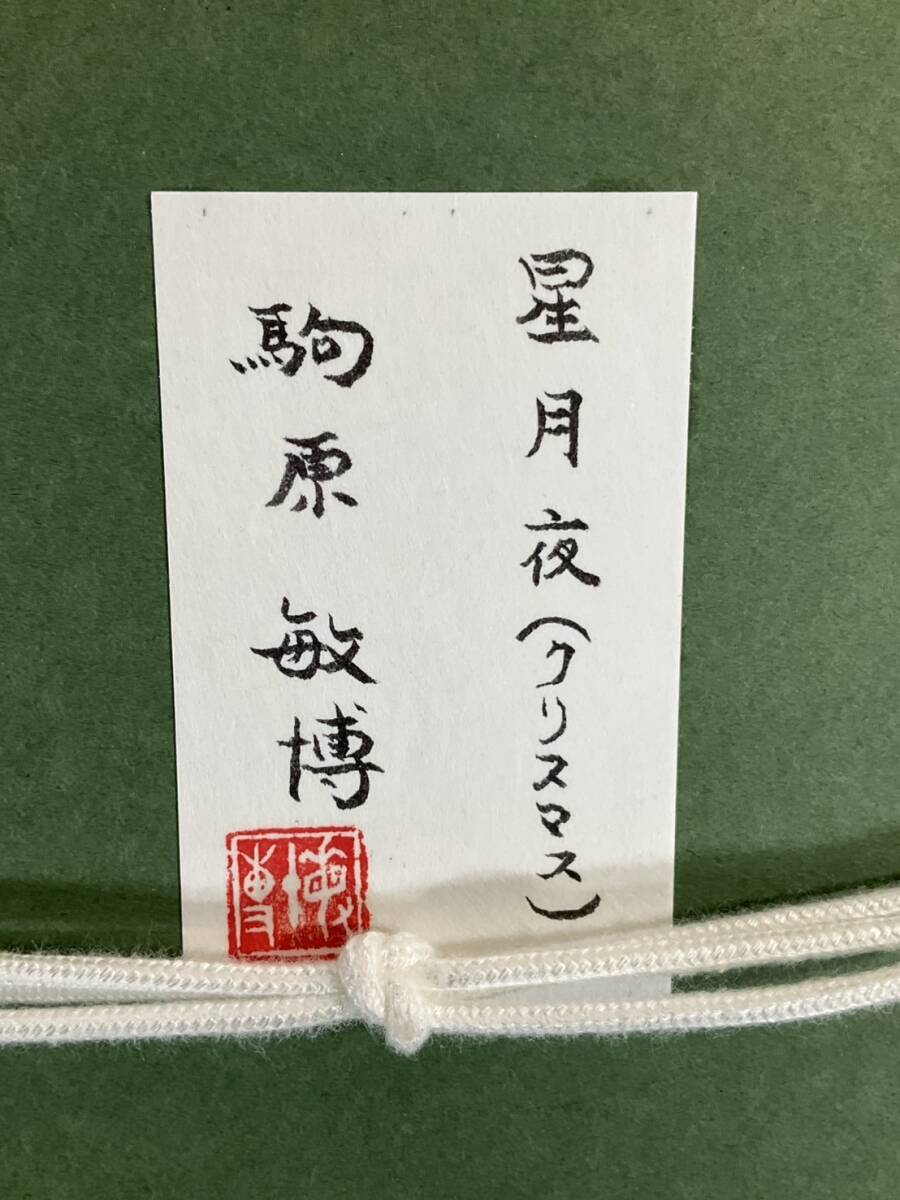 星月夜(クリスマス)
駒原敏博
敏博